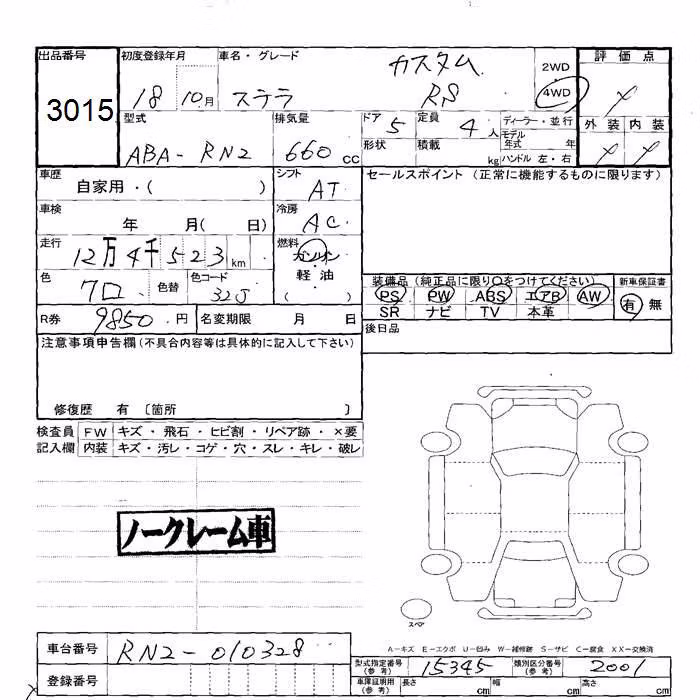 出品番号 初度登録年月 車名・グレード 2WD 評価点
3015 18 10月 ステラ カスタム RS 4WD
型式 排気量 ドア 5 定員 4人 ディーラー・並行 外装 内装
ABA-RN2 660cc 形状 積載 kg モデル年式 年
ハンドル 左・右
車歴 自家用・( ) シフト AT セールスポイント(正常に機能するものに限ります)
車検 年 月( 日) 冷房 AC
走行 12万4千523km 燃料 ガソリン
軽油
( )
色 クロ 色替 色コード 32J 装備品(純正品に限り〇をつけてください) 新車保証書
PS PW ABS エアB AW 有 無
SR ナビ TV 本革
R券 9850円 名変期限 月 日 後日品
注意事項申告欄(不具合内容等は具体的に記入して下さい)
修復歴 有 〔箇所 〕
検査員 FW キズ・飛石・ヒビ割・リペア跡・×要
記入欄 内装 キズ・汚レ・コゲ・穴・スレ・キレ・破レ
ノークレーム車
スペア
A-キズ E-エクボ U-凹み W-補修跡 S-サビ C-腐食 XX-交換済
車台番号 RN2-010328 型式指定番号(参考) 15345 類別区分番号(参考) 2001
登録番号 車庫証明用(参考) 長さ cm 幅 cm 高さ cm